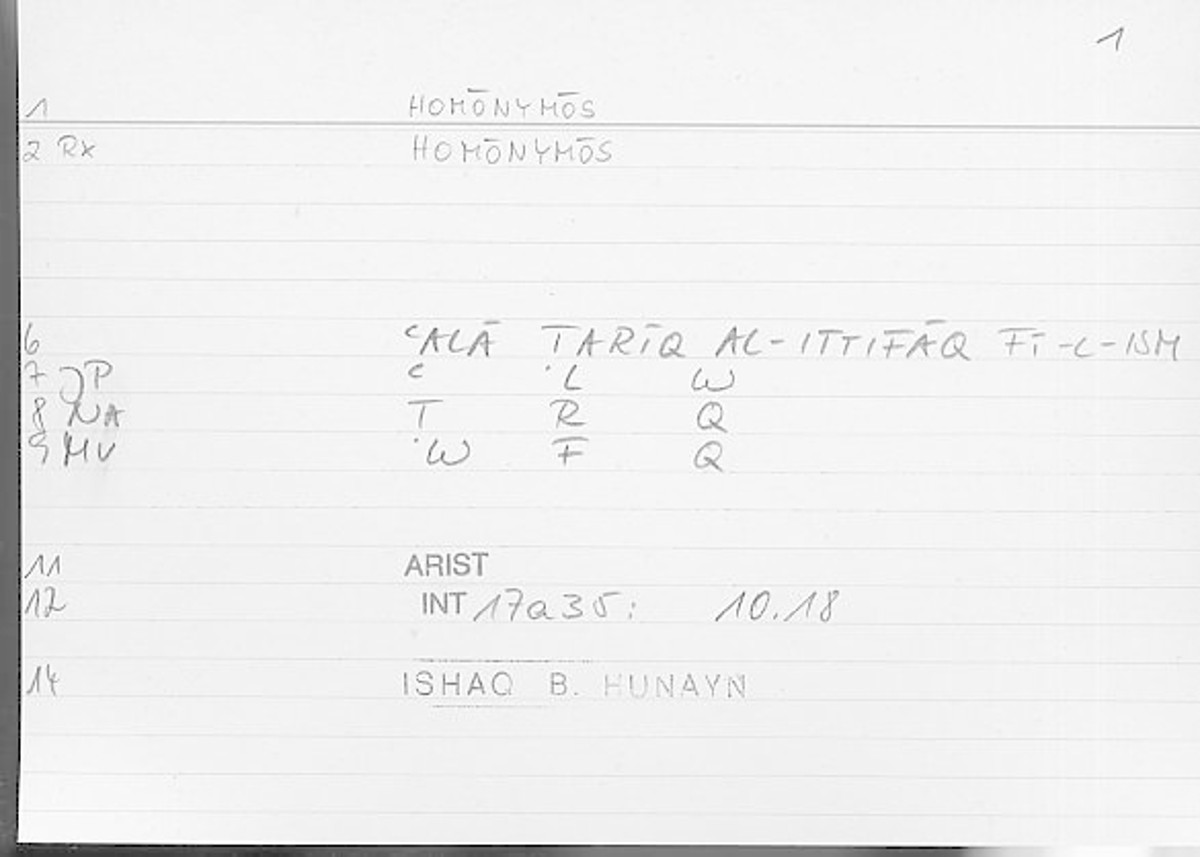 1
1 HOMŌNYMŌS
2 Rx HOMŌNYMŌS
6 ʿALĀ TARĪQ AL-ITTIFĀQ FĪ-L-ISM
7 JP ʿ ·L W
8 NA T R Q
9 MV ·W F Q
11 ARIST
12 INT 17a35: 10.18
14 ISHAQ B. HUNAYN